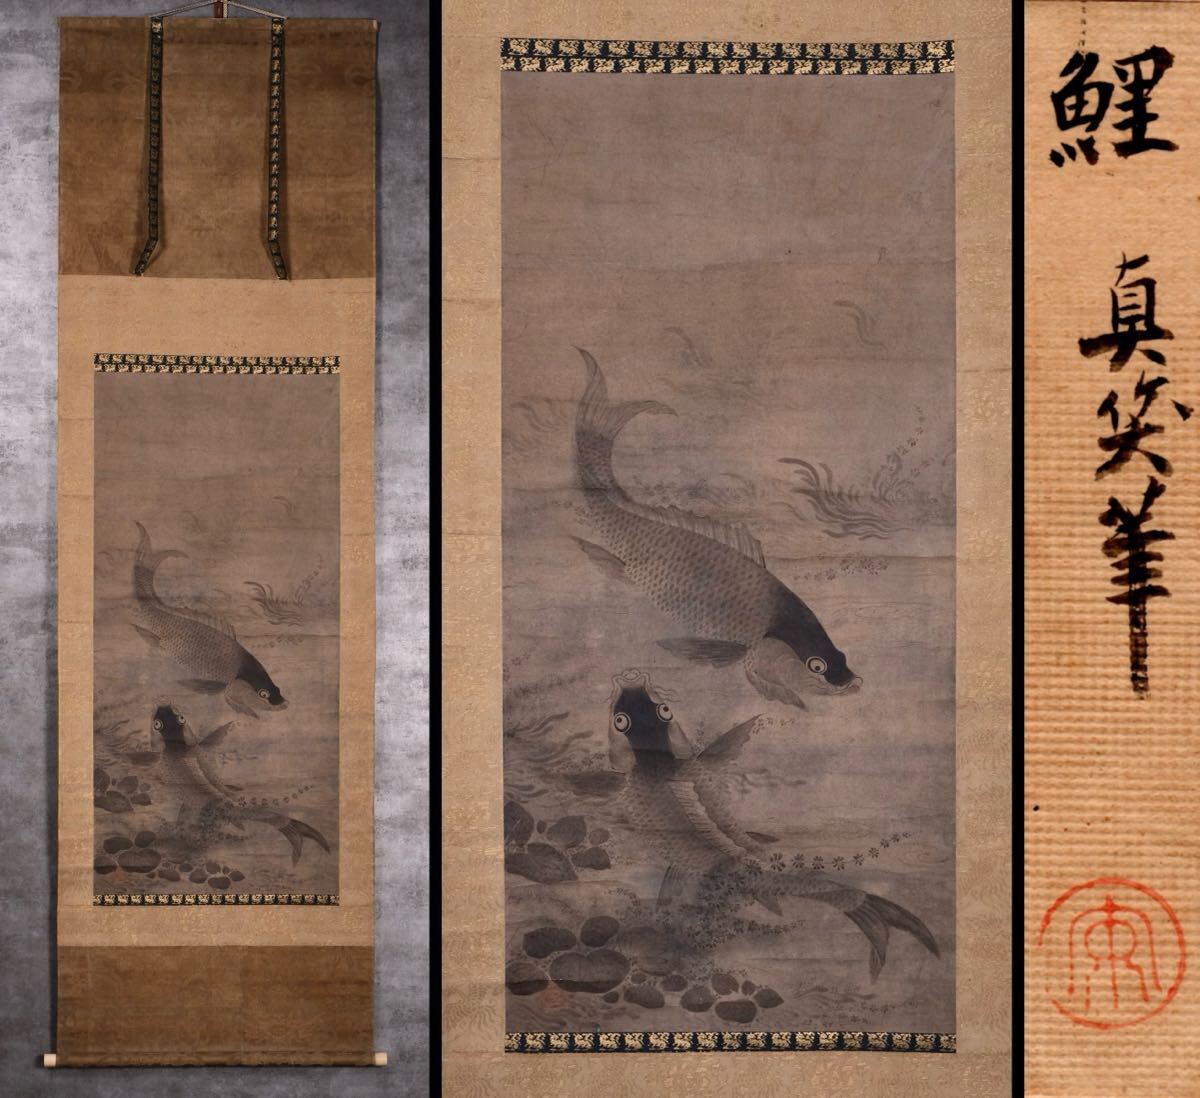 鯉 真笑筆